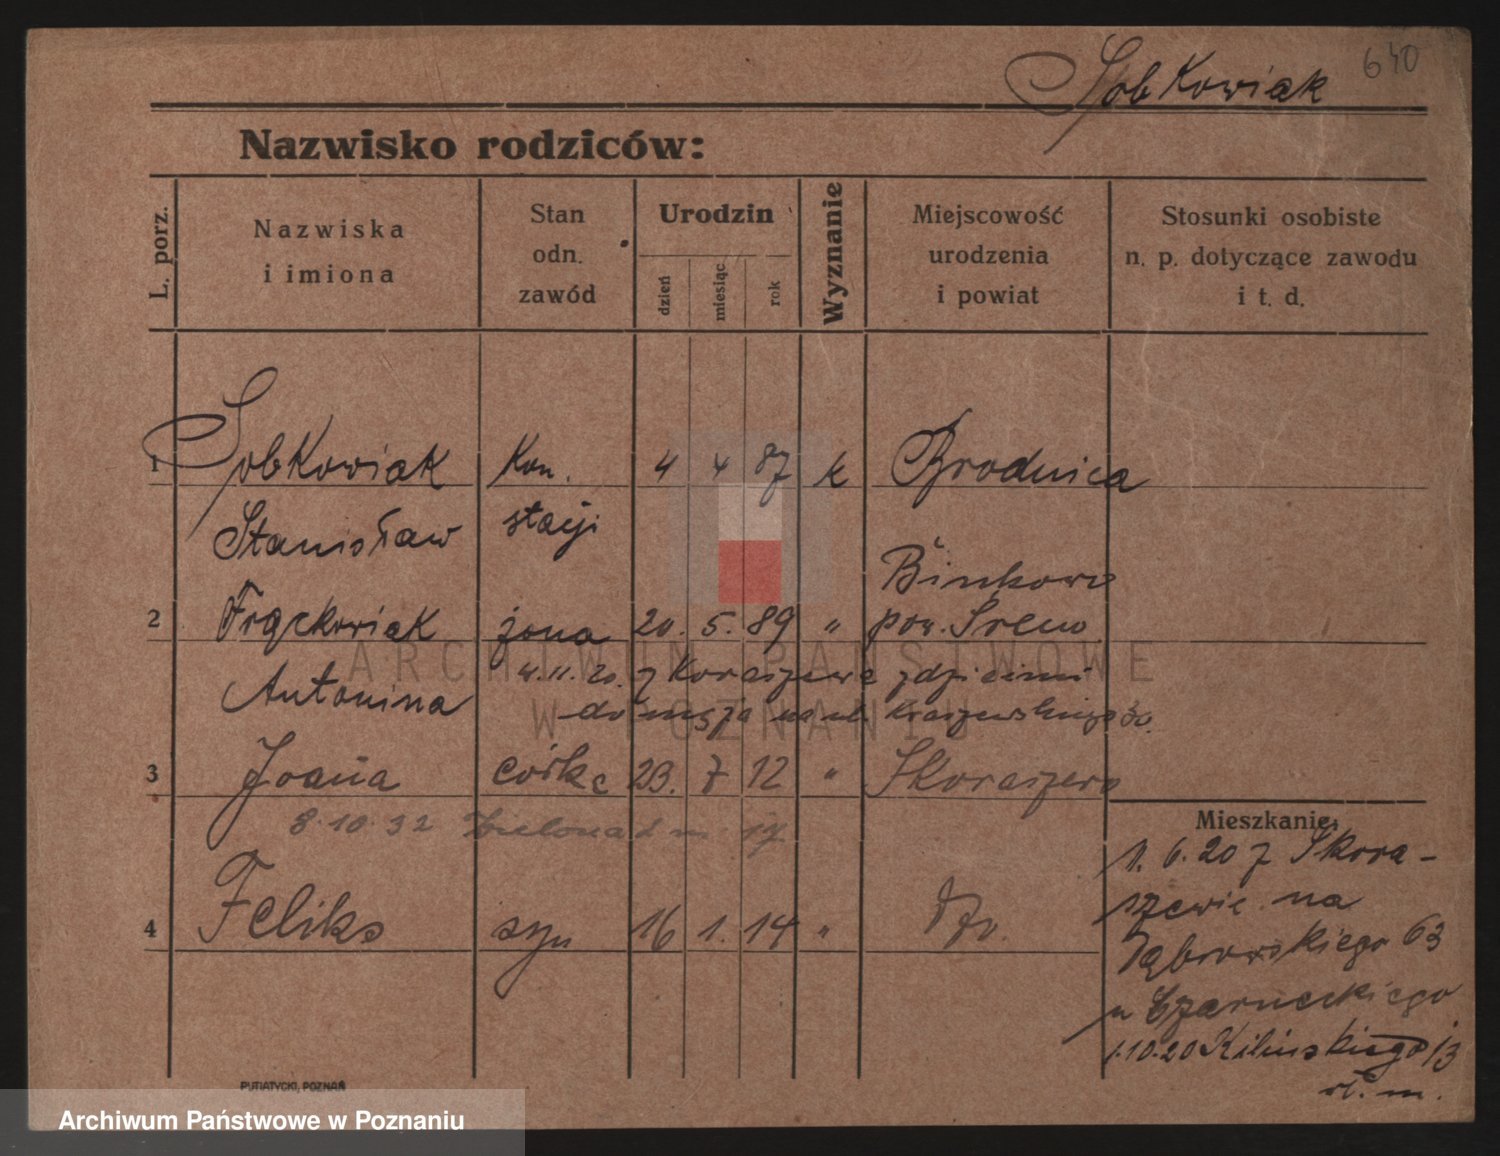 640
Sobkowiak
Nazwisko rodziców:
L. porz.
Nazwiska
i imiona
Stan
odn.
zawód
Urodzin
dzień
miesiąc
rok
Wyznanie
Miejscowość
urodzenia
i powiat
Stosunki osobiste
n. p. dotyczące zawodu
i t. d.
1 Sobkowiak Kon. 4 4 87 k Brodnica
Stanisław stacji
Binkowo
2 Frąckowiak żona 20. 5. 89 " pow. Śrem
Antonina 4.11.20. z Koraszewa z dziećmi
do męża na ul. Kraszewskiego 30.
3 Joana córka 23. 7 12 " Skoraszewo
8.10.32 Zielona 2 m. 17
4 Feliks syn 16 1. 14 " dto.
Mieszkanie:
11.6.20 z Skora-
szewic na
Dąbrowskiego 63
u Czarneckiego
1.10.20 Kilińskiego 13
wł. m.
PUTIATYCKI, POZNAŃ
ARCHIWUM PAŃSTWOWE
W POZNANIU
Archiwum Państwowe w Poznaniu